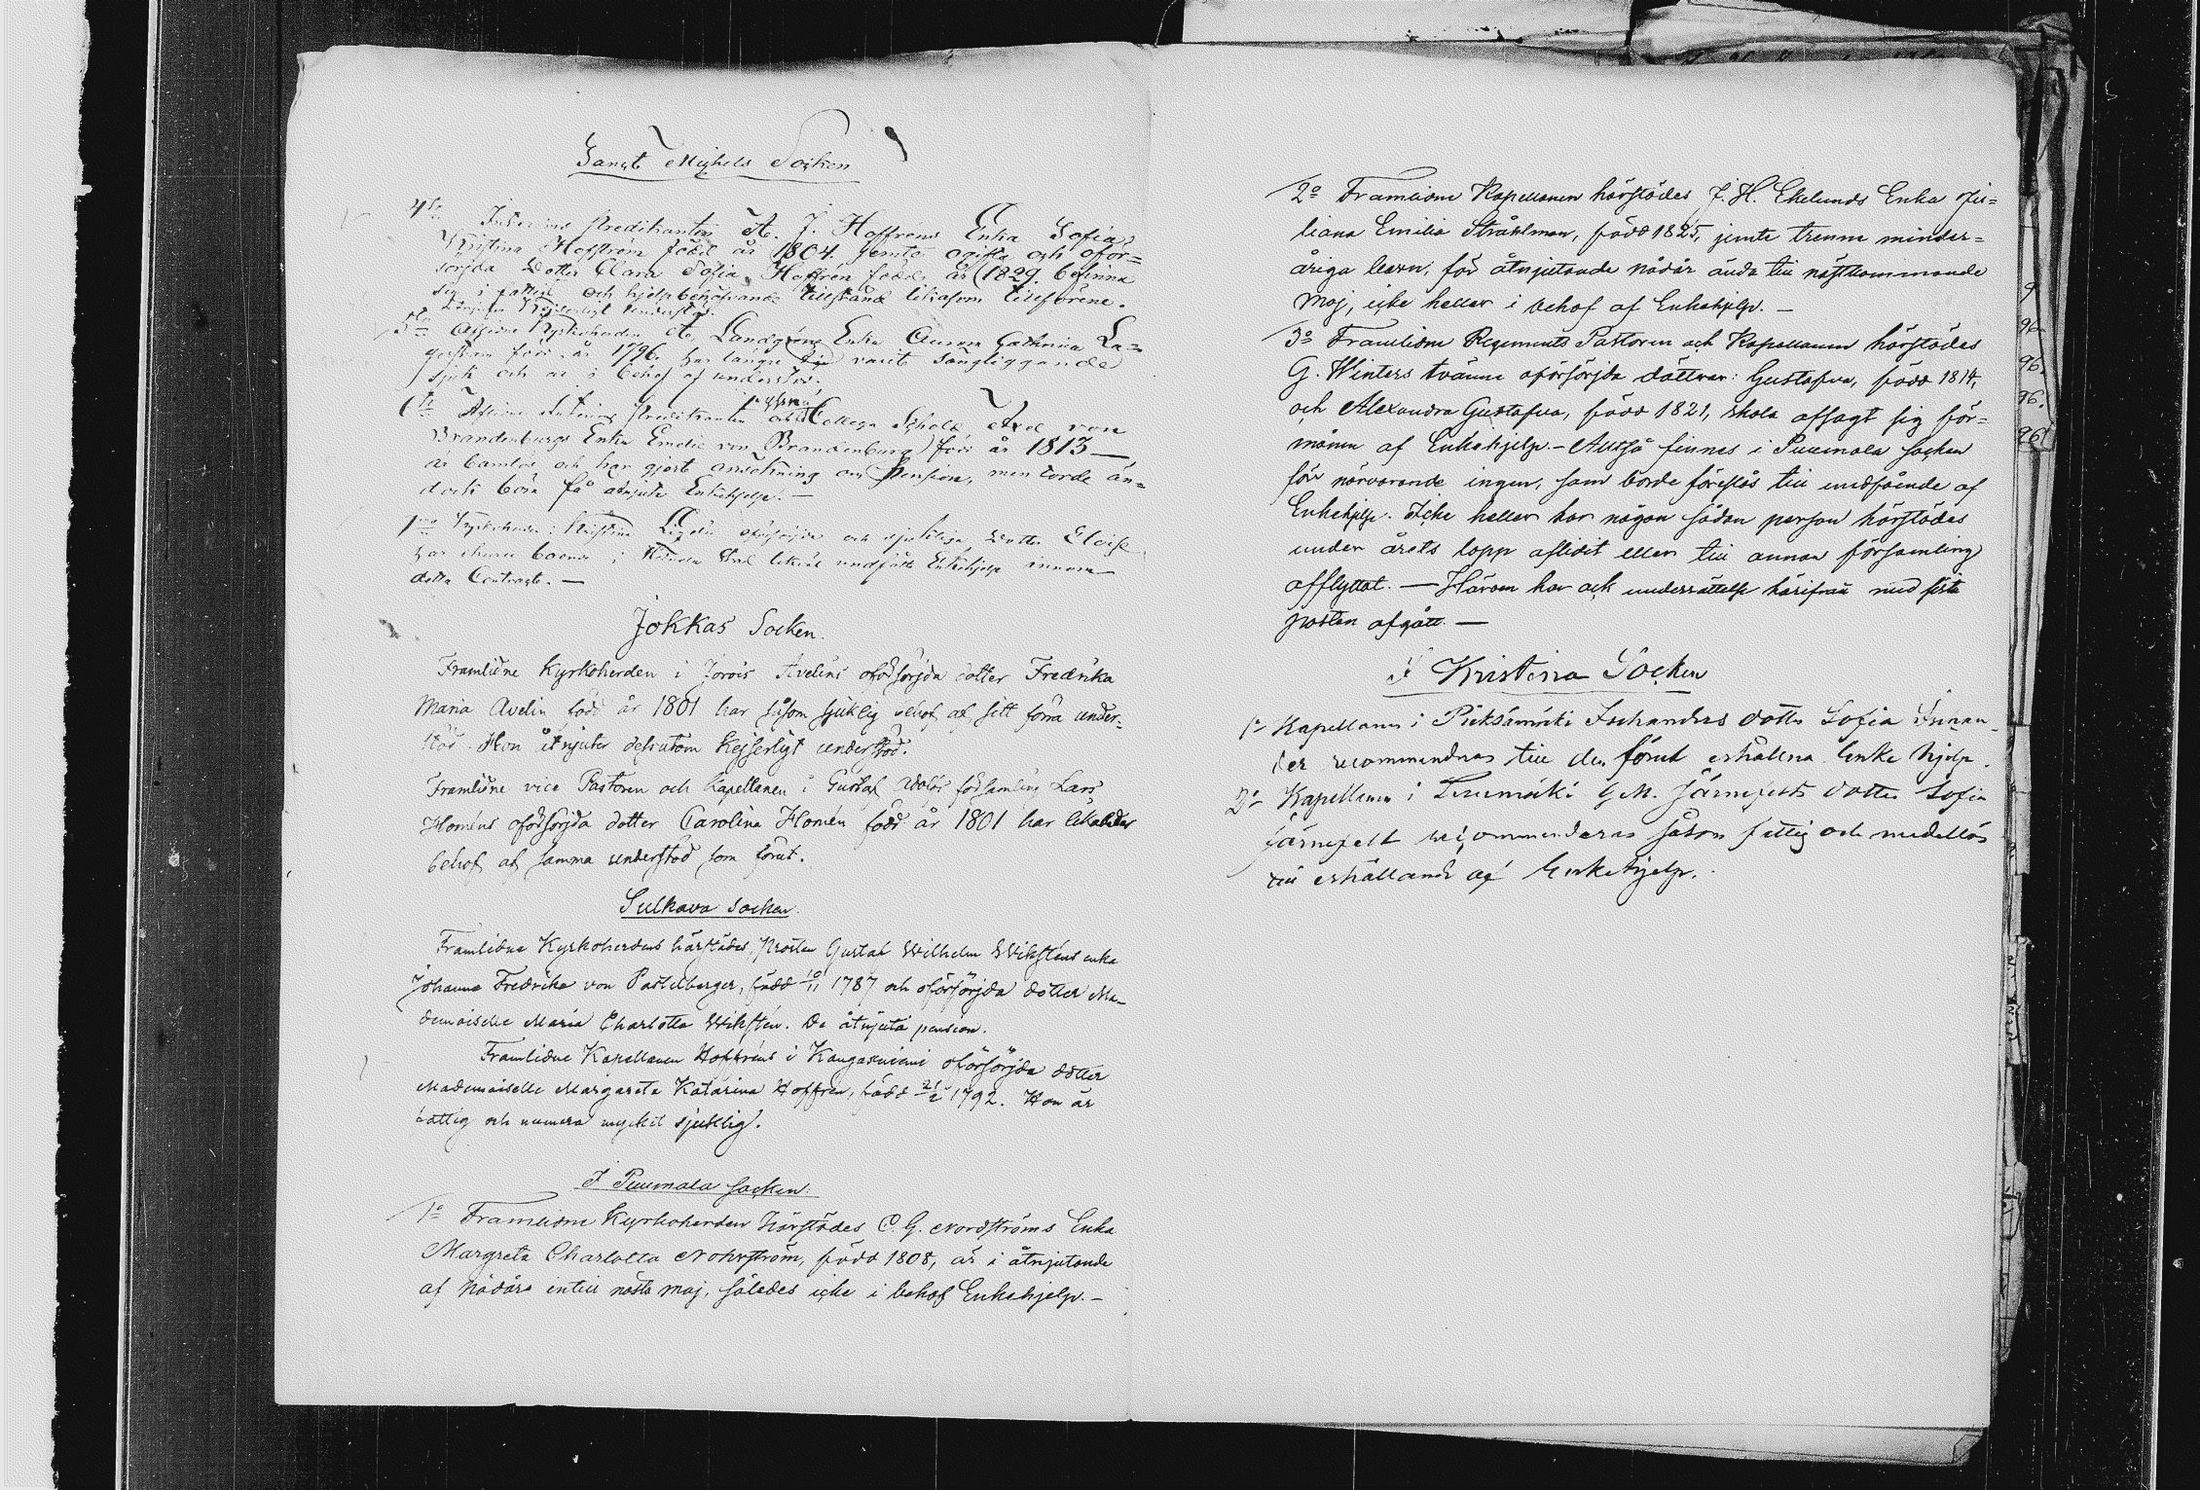 Sanct Michels Socken
4de Intermins Predikanten A. J. Hoffrens Enka Sofia
Kristina Hoffrén född år 1804. jemte ogifta och oför=
sörjda dotter Clara Sofia Hoffrén född år 1829. befinna
sig i fattig och hjelpbehöfvande tillstånd likasom tillförene.
Kejserligt understöd.
5te Aflidne Kyrkoherden A. Landgréns Enka Aurora Catharina La=
född år 1796. har längre tid varit sängliggande
sjuk och är i behof af understöd.
6te Aflidne Intermins Predikanten och Collega Scholæ Axel von
Brandenburgs Enka Emelie von Brandenburg född år 1813 —
är barnlös och har gjort ansökning om Pension, men torde än=
dock böra få åtnjuta Enkehjelp. —
Kyrkoherden i Kristina oförsörjda och sjukliga dotter Eloise
har ehuru boende i Stad likväl undfått Enkehjelp innom
detta Contract. —
Jokkas Socken.
Framlidne Kyrkoherden i Jorois Avelins oförsörjda dotter Fredrika
Maria Avelin född år 1801 har såsom sjuklig behof af sitt förra under-
stöd. Hon åtnjuter dessutom Kejserligt understöd.
Framlidne vice Pastoren och Kapellanen i Gustaf Adolfs församling Lars
Homéns oförsörjda dotter Carolina Homén född år 1801 har likaledes
behof af samma understöd som förut.
Sulkava socken.
Framlidne Kyrkoherdens härstädes, Prosten Gustaf Wilhelm Wiksténs enka
Johanna Fredrika von Pastelberger, född 10/11 1787 och oförsörjda dotter Ma-
demoiselle Maria Charlotta Wikstén. De åtnjuta pension.
Framlidne Kapellanen Hoffréns i Kangasniemi oförsörjda dotter
Mademoiselle Margareta Katarina Hoffrén, född 21/2 1792. Hon är
fattig och numera mycket sjuklig.
I Puumala socken.
1o Framlidne Kyrkoherden härstädes C. G. Nordströms Enka
Margreta Charlotta Nohrström, född 1808, är i åtnjutande
af Nådårs intill nästa maj, således icke i behof Enkehjelp. —
2o Framlidne Kapellanen härstädes J. H. Ekelunds Enka Ju=
liana Emilia Stråhlman, född 1825, jemte trenne minder=
åriga barn, för åtnjutande nådår ända till nästkommande
Maj, icke heller i behof af Enkehjelp. —
3o Framlidne Regements Pastoren och Kapellanen härstädes
G. Winters tvänne oförsörjda döttrar: Gustafva, född 1814,
och Alexandra Gustafva, född 1821, skola afsagt sig för=
månen af Enkehjelp. — Alltså finnes i Puumala socken
för närvarande ingen, som borde föreslås till undfående af
Enkehjelp. Icke heller har någon sådan person härstädes
under årets lopp aflidit eller till annan församling
afflyttat. — Härom har ock underrättelse härifrån med sista
posten afgått. —
I Kristina Socken
1o Kapellanen i Pieksämäki Ischanders dotter Sofia
der recommenderas till den förut erhållna Enke hjelp.
2o Kapellanen i Luumäki G. M. Järnefelts dotter Sofia
Järnefelt recommenderas såsom fattig och medellös
till erhållande af Enkehjelp.
9
96
96.
96.
96